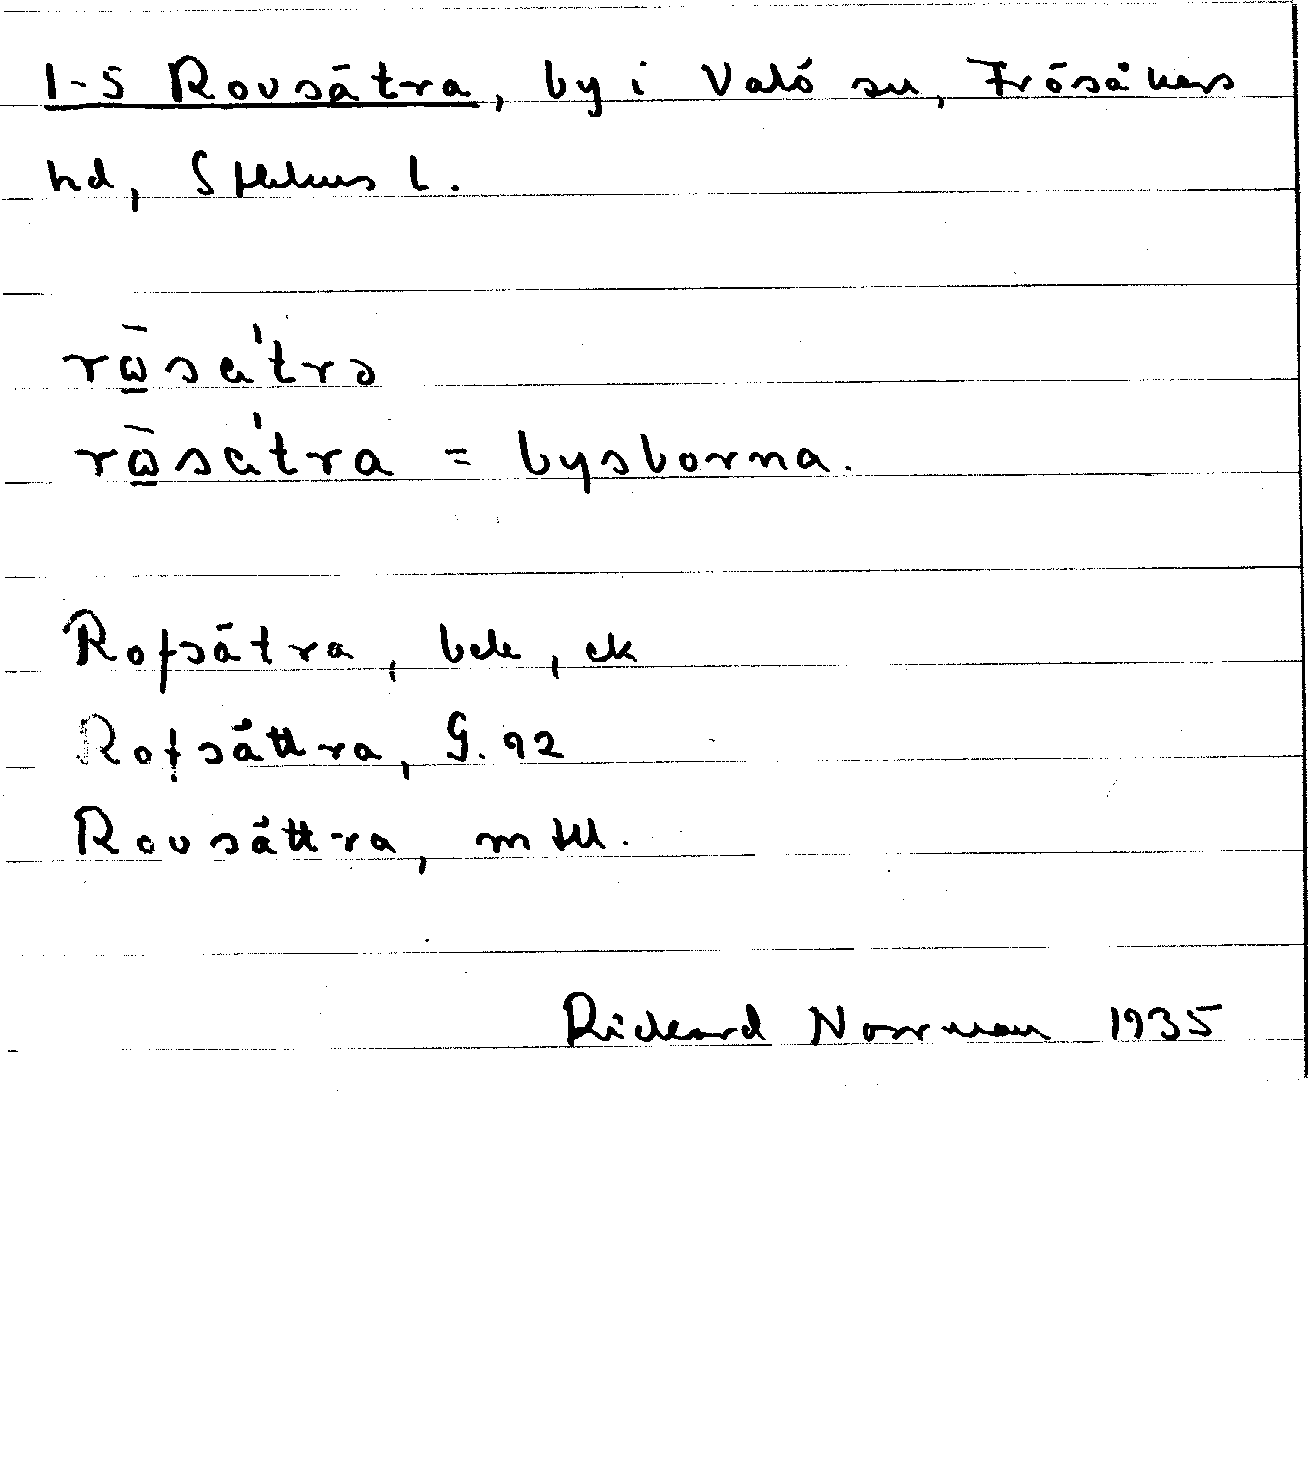 1-5 Rovsätra, by i Valö sn, Frösåkers
hd, Sthlms l.
rω̱̄sα'trə
rω̱̄sα'tra = bysborna.
Rofsätra, bek, ek
Rofsättra, G. 92
Rovsättra, mtl.
Rickard Norrman 1935